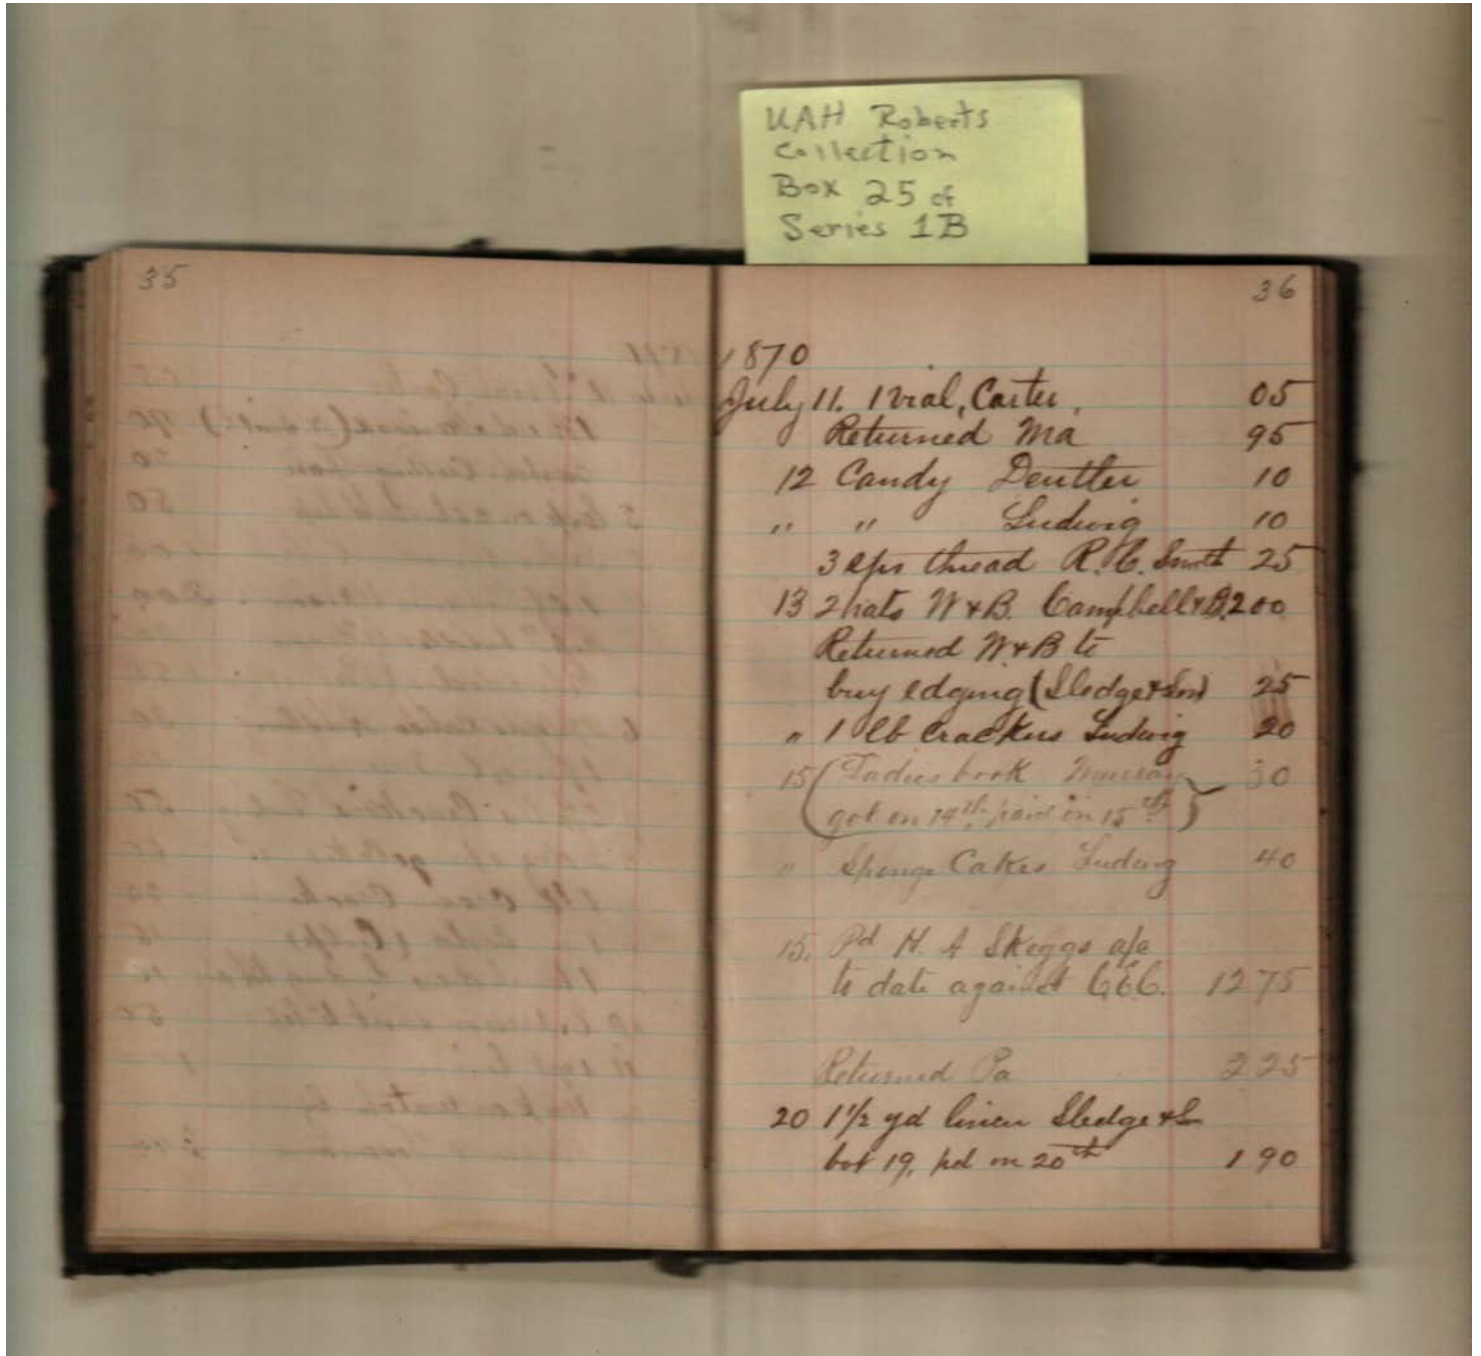 UAH Roberts
Collection
Box 25 of
Series 1B
35
36
1870
July 11. 1 vial, Carter, 05
Returned Ma 95
12 Candy Deutler 10
" " Ludwig 10
3 sps thread R. C. Smith 25
13 2 hats W & B. Campbell & B. 200
Returned W & B to
buy edging (Sledge & Son) 25
" 1 lb crackers Ludwig 20
15 (Ladies book 30
got on 14th, paid on 15th)
" Sponge Cakes Ludwig 40
15. Pd H. A Skeggs a/c
to date against CEC. 1275
Returned Pa 225
20 1 1/2 yd linen Sledge & Son
bot 19, pd on 20th 190